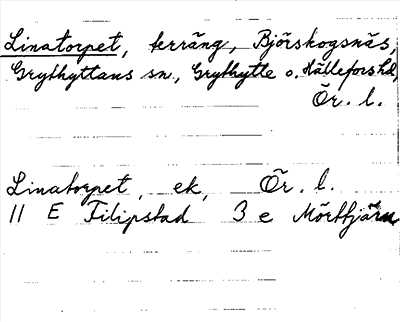 Linatorpet, terräng, Björskogsnäs,
Grythyttans sn., Grythytte o. Hällefors hd,
Ör. l.
Linatorpet, ek, Ör. l.
11 E Filipstad 3 e Mörttjärn